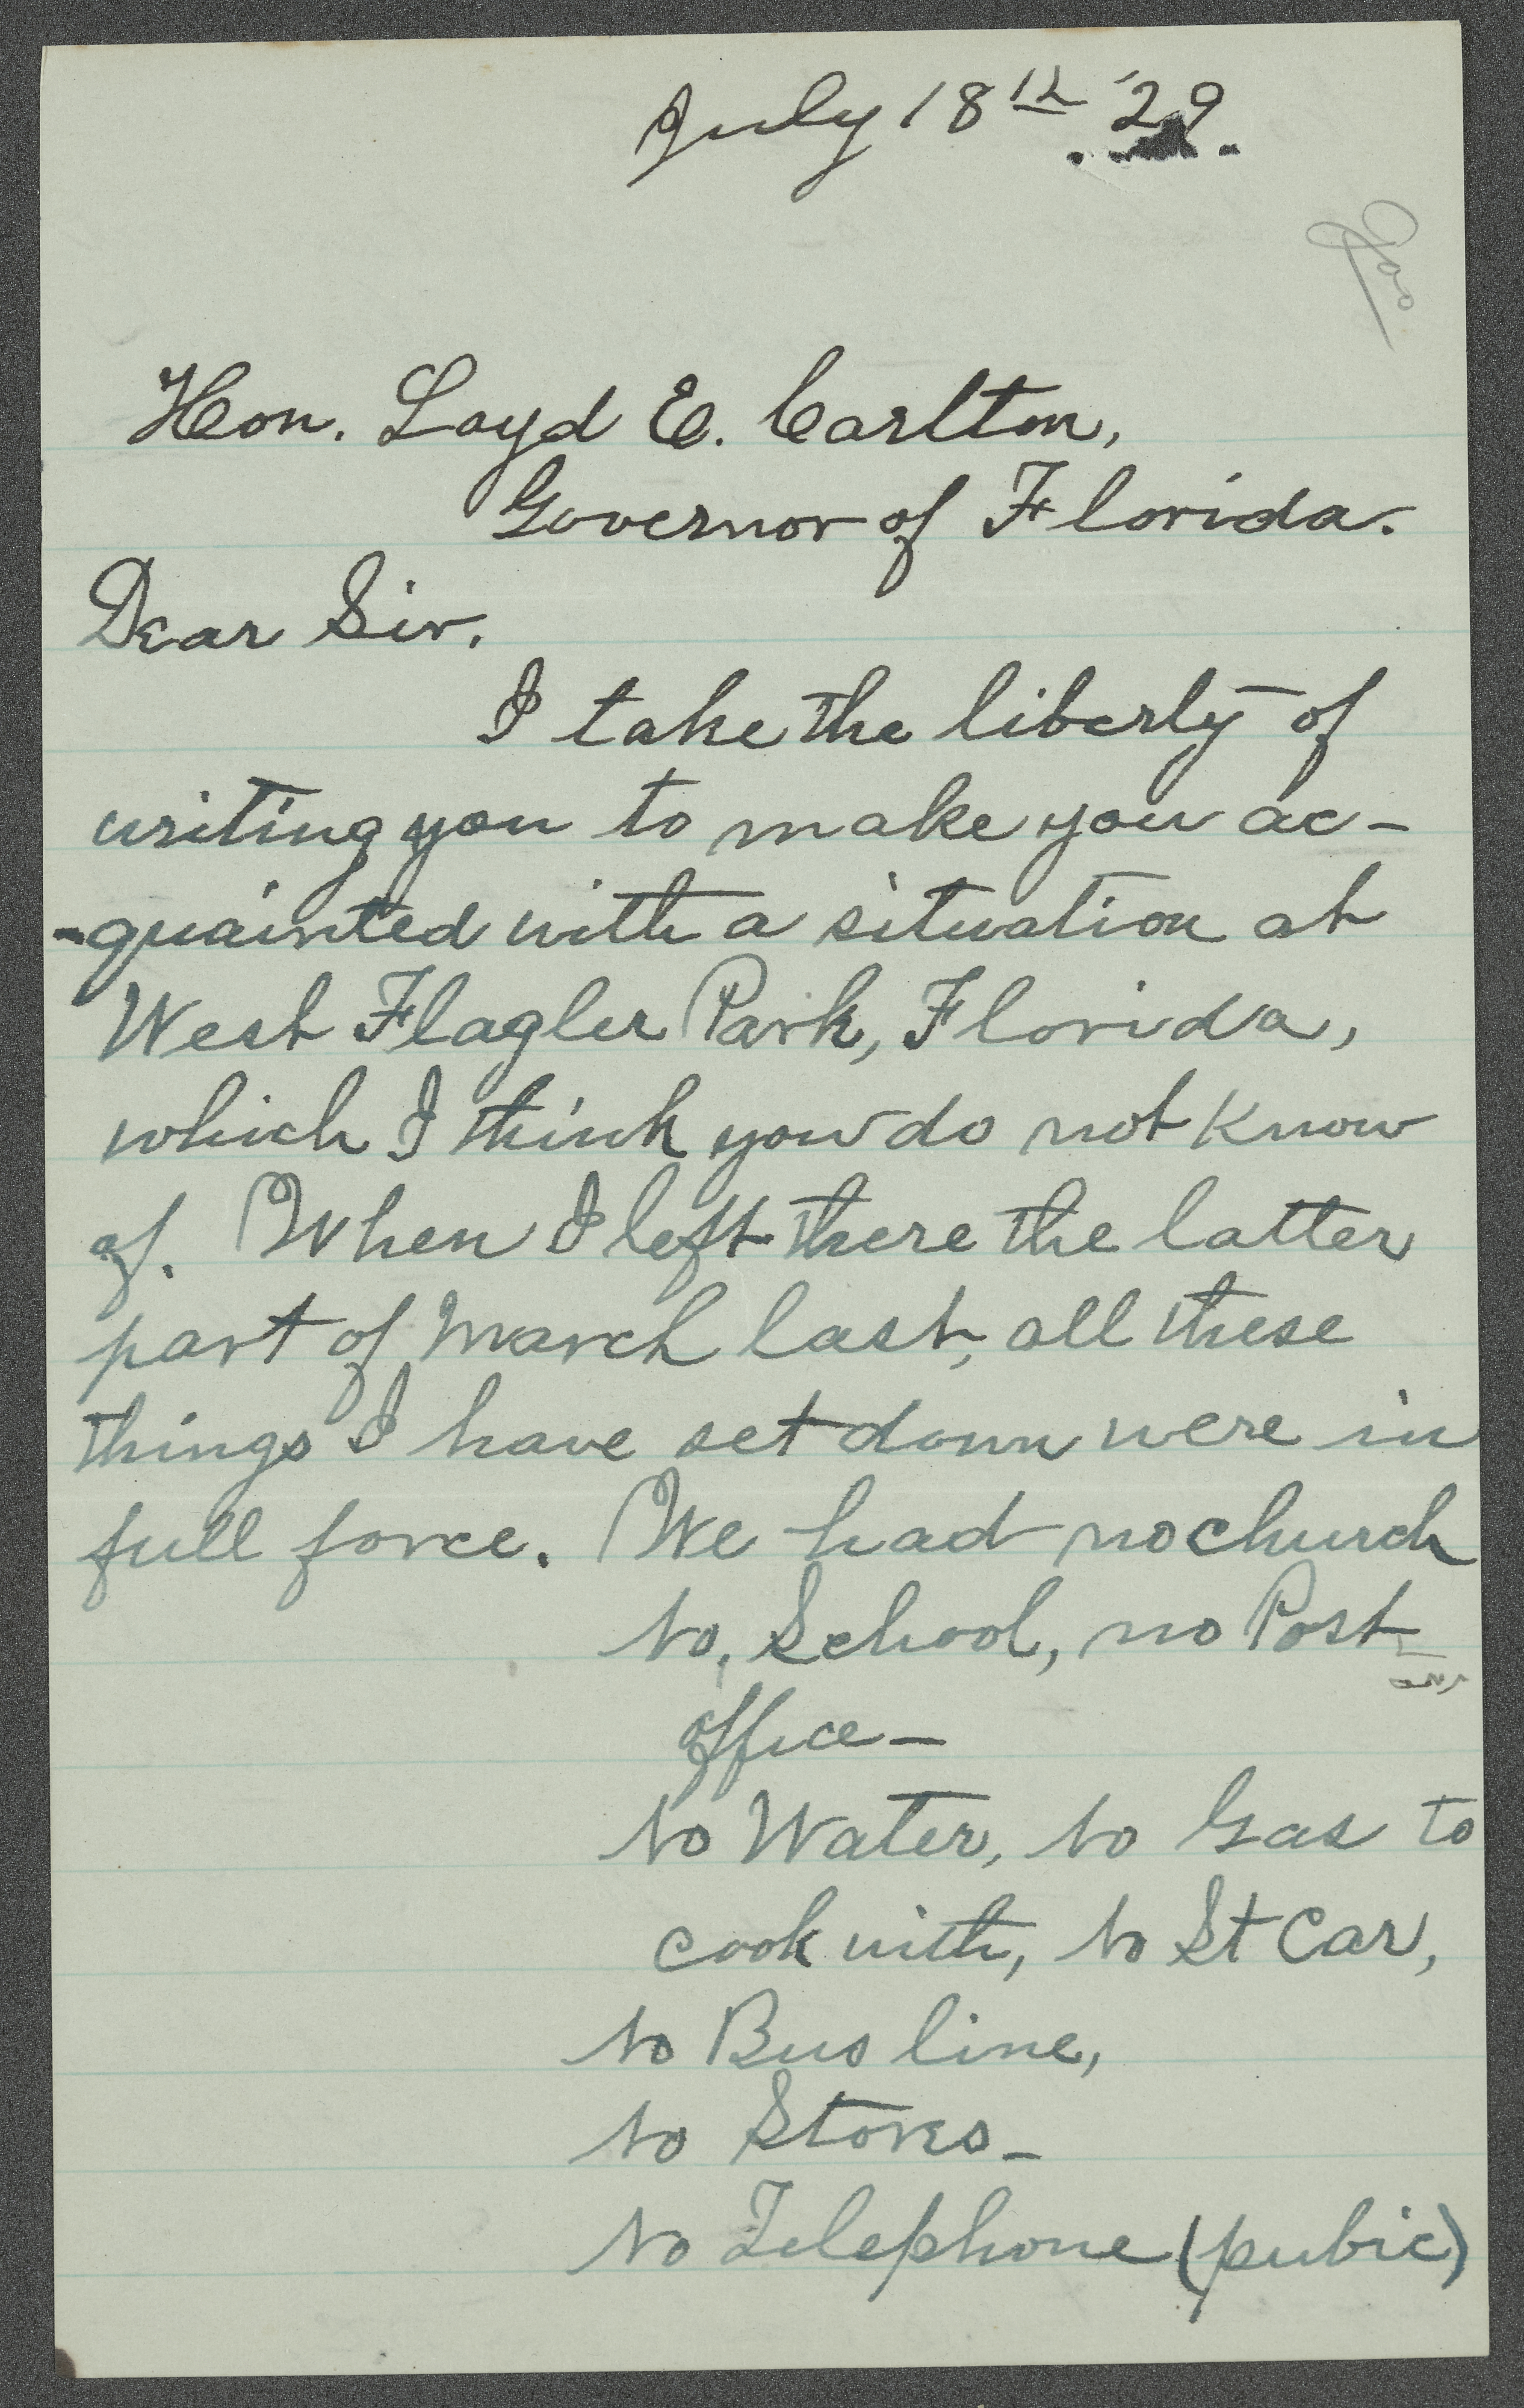 July 18th '29.
Hon. Loyd E. Carlton,
Governor of Florida.
Dear Sir,
I take the liberty of
writing you to make you ac-
-quainted with a situation at
West Flagler Park, Florida,
which I think you do not know
of. When I left there the latter
part of March last, all these
things I have set down were in
full force. We had no church
No, School, no Post
office—
No Water, No Gas to
cook with, No St Car,
No Bus line,
No Stores—
No Telephone (pubic)